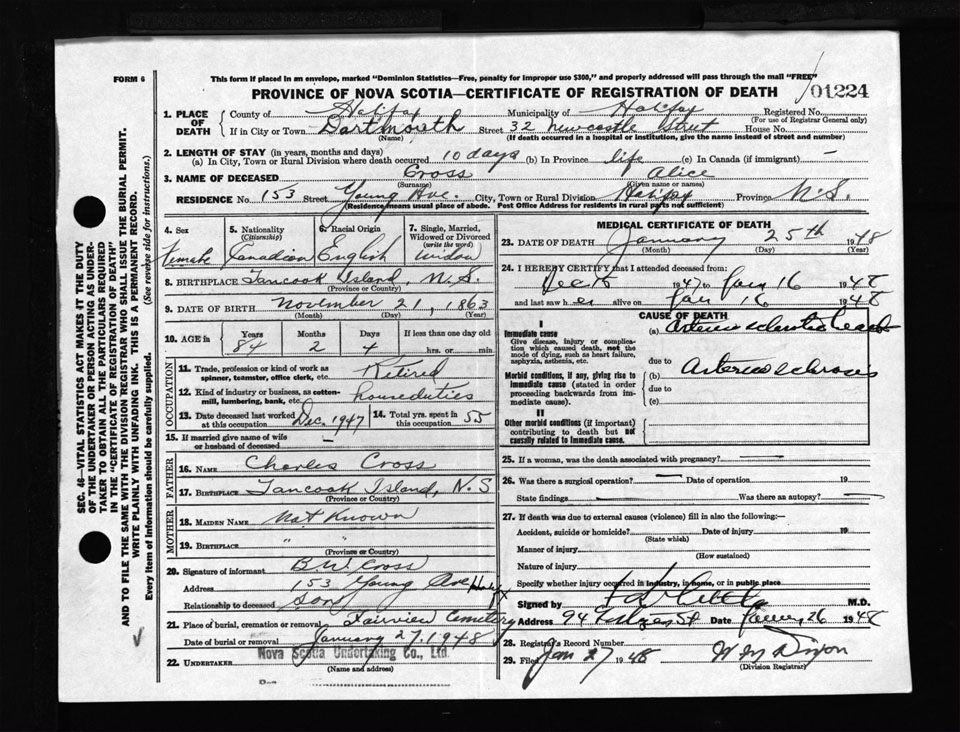 FORM 6
This form if placed in an envelope, marked "Dominion Statistics—Free, penalty for improper use $300," and properly addressed will pass through the mail "FREE"
PROVINCE OF NOVA SCOTIA—CERTIFICATE OF REGISTRATION OF DEATH
01224
1. PLACE OF DEATH
County of Halifax Municipality of Halifax Registered No.
(For use of Registrar General only)
If in City or Town Dartmouth Street 32 Newcastle Street House No.
(Name) (If death occurred in a hospital or institution, give the name instead of street and number)
2. LENGTH OF STAY (in years, months and days)
(a) In City, Town or Rural Division where death occurred 10 days (b) In Province life (c) In Canada (if immigrant) —
3. NAME OF DECEASED Cross Alice
(Surname) (Given name or names)
RESIDENCE No. 153 Street Young Ave. City, Town or Rural Division Halifax Province N.S.
(Residence means usual place of abode. Post Office Address for residents in rural parts not sufficient)
4. Sex Female
5. Nationality (Citizenship) Canadian
6. Racial Origin English
7. Single, Married, Widowed or Divorced (write the word) Widow
8. BIRTHPLACE Tancook Island, N.S.
(Province or Country)
9. DATE OF BIRTH November 21, 1863
(Month) (Day) (Year)
10. AGE in Years Months Days If less than one day old
84 2 4 hrs. or min.
OCCUPATION
11. Trade, profession or kind of work as spinner, teamster, office clerk, etc. Retired
12. Kind of industry or business, as cotton-mill, lumbering, bank, etc. houseduties
13. Date deceased last worked at this occupation Dec. 1947
14. Total yrs. spent in this occupation 55
15. If married give name of wife or husband of deceased —
FATHER
16. NAME Charles Cross
17. BIRTHPLACE Tancook Island, N.S
(Province or Country)
MOTHER
18. MAIDEN NAME Not Known
19. BIRTHPLACE " "
(Province or Country)
20. Signature of informant B W Cross
Address 153 Young Ave Halifx
Relationship to deceased Son
21. Place of burial, cremation or removal Fairview Cemetery
Date of burial or removal January 27, 1948
22. UNDERTAKER Nova Scotia Undertaking Co., Ltd.
(Name and address)
MEDICAL CERTIFICATE OF DEATH
23. DATE OF DEATH January 25th 1948
(Month) (Day) (Year)
24. I HEREBY CERTIFY that I attended deceased from:
1947 to Jan 16 1948
and last saw her alive on Jan 16 1948
CAUSE OF DEATH
I
Immediate cause
Give disease, injury or complication which caused death, not the mode of dying, such as heart failure, asphyxia, asthenia, etc.
(a)
due to
Morbid conditions, if any, giving rise to immediate cause (stated in order proceeding backwards from immediate cause).
(b) Arteriosclerosis
due to
(c)
II
Other morbid conditions (if important) contributing to death but not causally related to immediate cause.
25. If a woman, was the death associated with pregnancy? —
26. Was there a surgical operation? — Date of operation 19
State findings — Was there an autopsy? —
27. If death was due to external causes (violence) fill in also the following:—
Accident, suicide or homicide? Date of injury 19
(State which)
Manner of injury
(How sustained)
Nature of injury
Specify whether injury occurred in industry, in home, or in public place
Signed by M.D.
Address 94 St Date January 26 1948
28. Registrar's Record Number
29. Filed Jan 27 1948 W M Dixon
(Division Registrar)
SEC. 46—VITAL STATISTICS ACT MAKES IT THE DUTY
OF THE UNDERTAKER OR PERSON ACTING AS UNDER-
TAKER TO OBTAIN ALL THE PARTICULARS REQUIRED
IN THE "CERTIFICATE OF REGISTRATION OF DEATH"
AND TO FILE THE SAME WITH THE DIVISION REGISTRAR WHO SHALL ISSUE THE BURIAL PERMIT.
WRITE PLAINLY WITH UNFADING INK. THIS IS A PERMANENT RECORD.
Every item of Information should be carefully supplied. (See reverse side for instructions.)